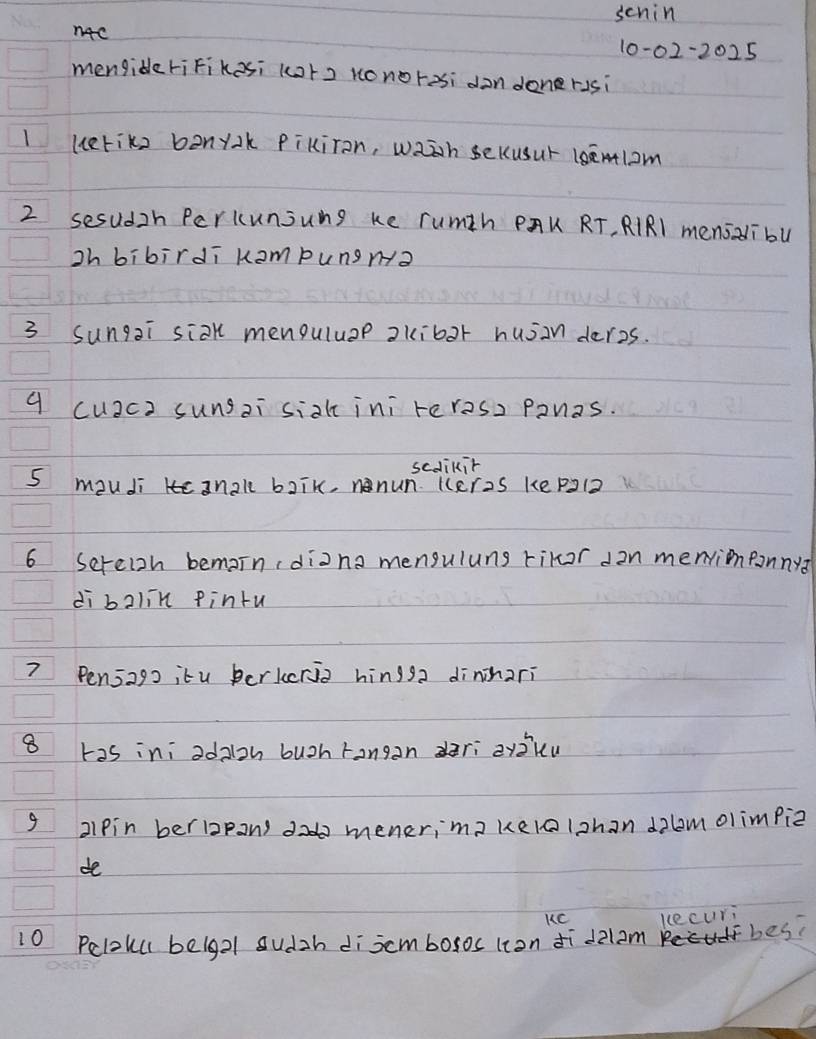 senin
10-02-2025
mengiderifikasi kara konorasi dan donerasi
1 kerika banyak Pikiran, wajah sekusur
2 sesudah Perkunjung ke rumah PAK RT, RIRI menjadi bu
ah bibir di kampungnya
3 sungai siak menguluap akibar hujan deras.
4 cuaca sungai siak ini rerasa Panas.
sedikir
5 maudi anak baik. nanun. keras kepala
6 serelah bemain, diana mengulung rikar dan menyimpannya
di balik Pintu
7 Penjaga itu berkerja hingga dinihari
8 ras ini adalah buah rangan dari ayahku
9 alpin berlapang dada menerima kekalahan dalam olimpia
de
ke kecuri
10 Pelaku belgal sudah di jembosos kan di dalam besi